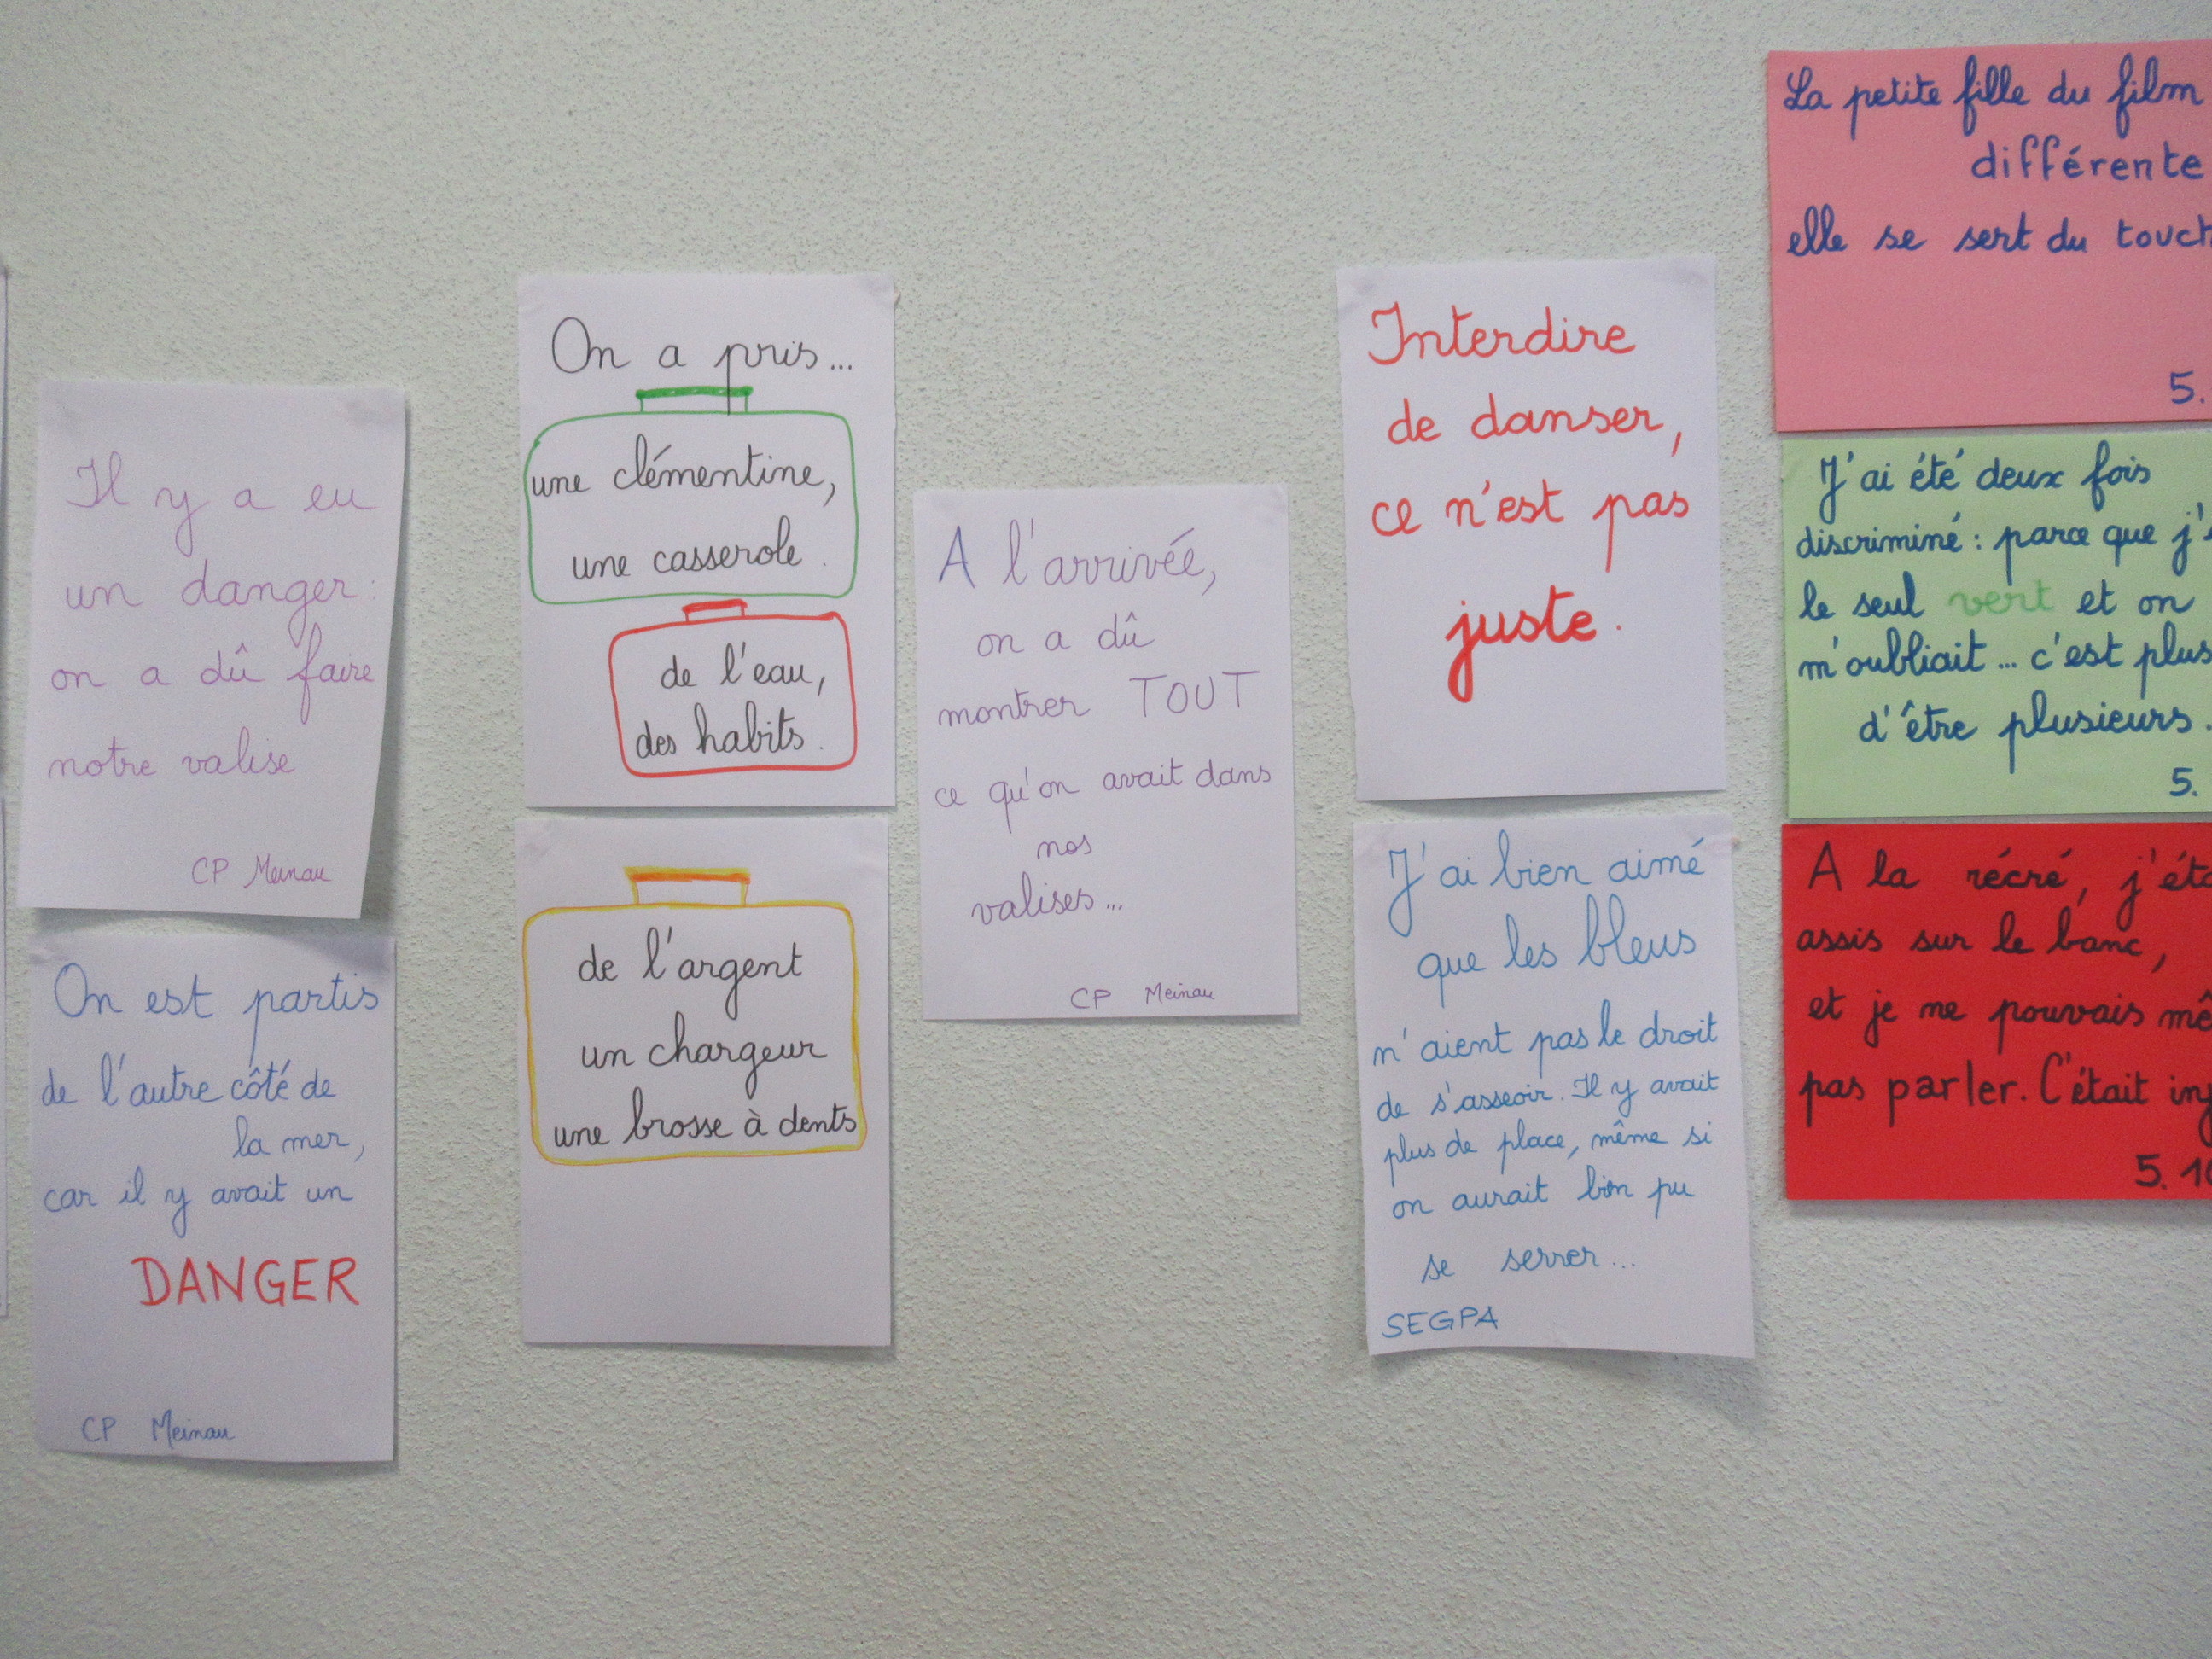 Il y a eu
un danger :
on a dû faire
notre valise
CP Meinau
On est partis
de l'autre côté de
la mer,
car il y avait un
DANGER
CP Meinau
On a pris...
une clémentine,
une casserole.
de l'eau,
des habits.
de l'argent
un chargeur
une brosse à dents
A l'arrivée,
on a dû
montrer TOUT
ce qu'on avait dans
nos
valises...
CP Meinau
Interdire
de danser,
ce n'est pas
juste.
J'ai bien aimé
que les bleus
n'aient pas le droit
de s'asseoir. Il y avait
plus de place, même si
on aurait bien pu
se serrer...
SEGPA
La petite fille du film
différente
elle se sert du
5.
J'ai été deux fois
discriminé : parce que
le seul vert et on
m'oubliait... c'est plus
d'être plusieurs.
5.
A la récré,
assis sur le banc,
et je ne pouvais
pas parler. C'était
5.